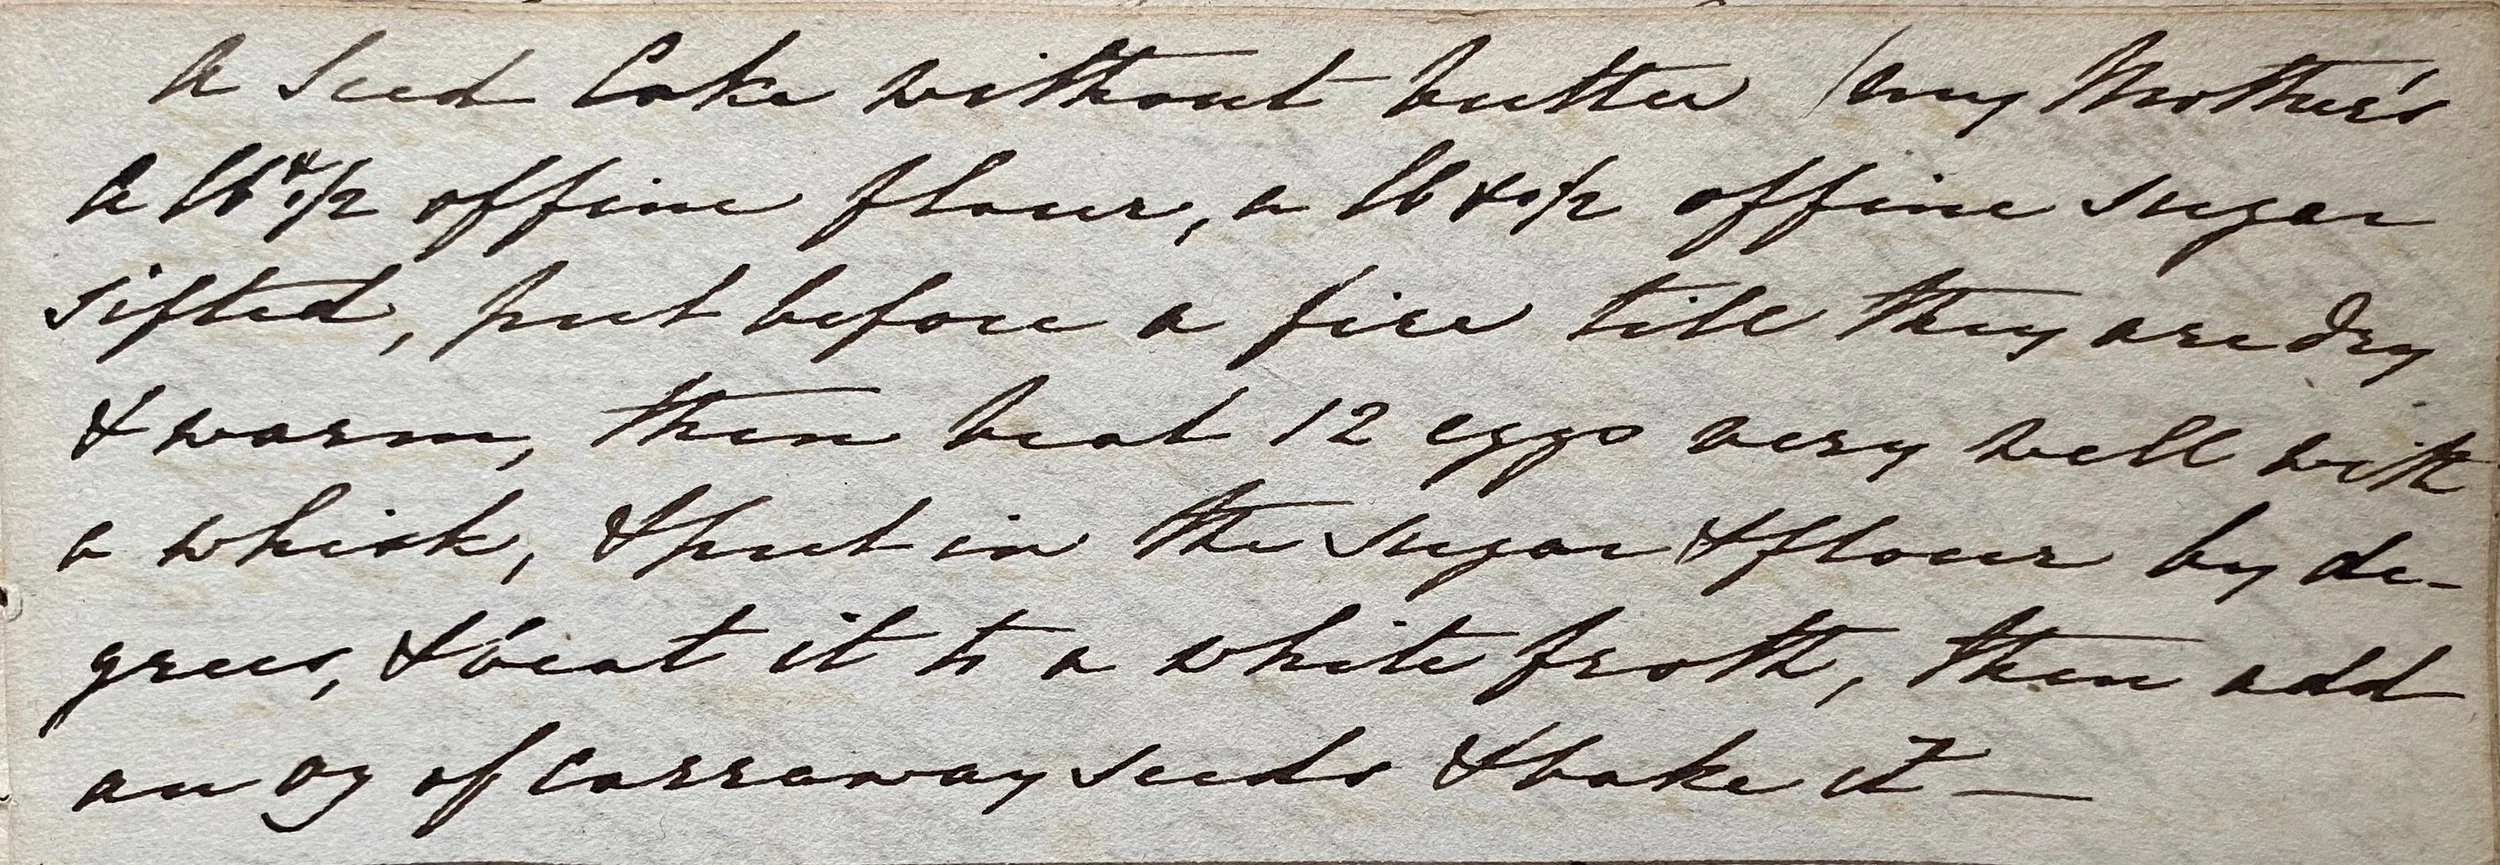 A Seed Cake without butter /my Mother's
A lb & 1/2 of fine flour, a lb & 1/2 of fine sugar
sifted, put before a fire till they are dry
& warm, then beat 12 eggs very well with
a whisk, & put in the sugar & flour by de-
grees, & beat it to a white froth, then add
an oz of carraway seeds & bake it —